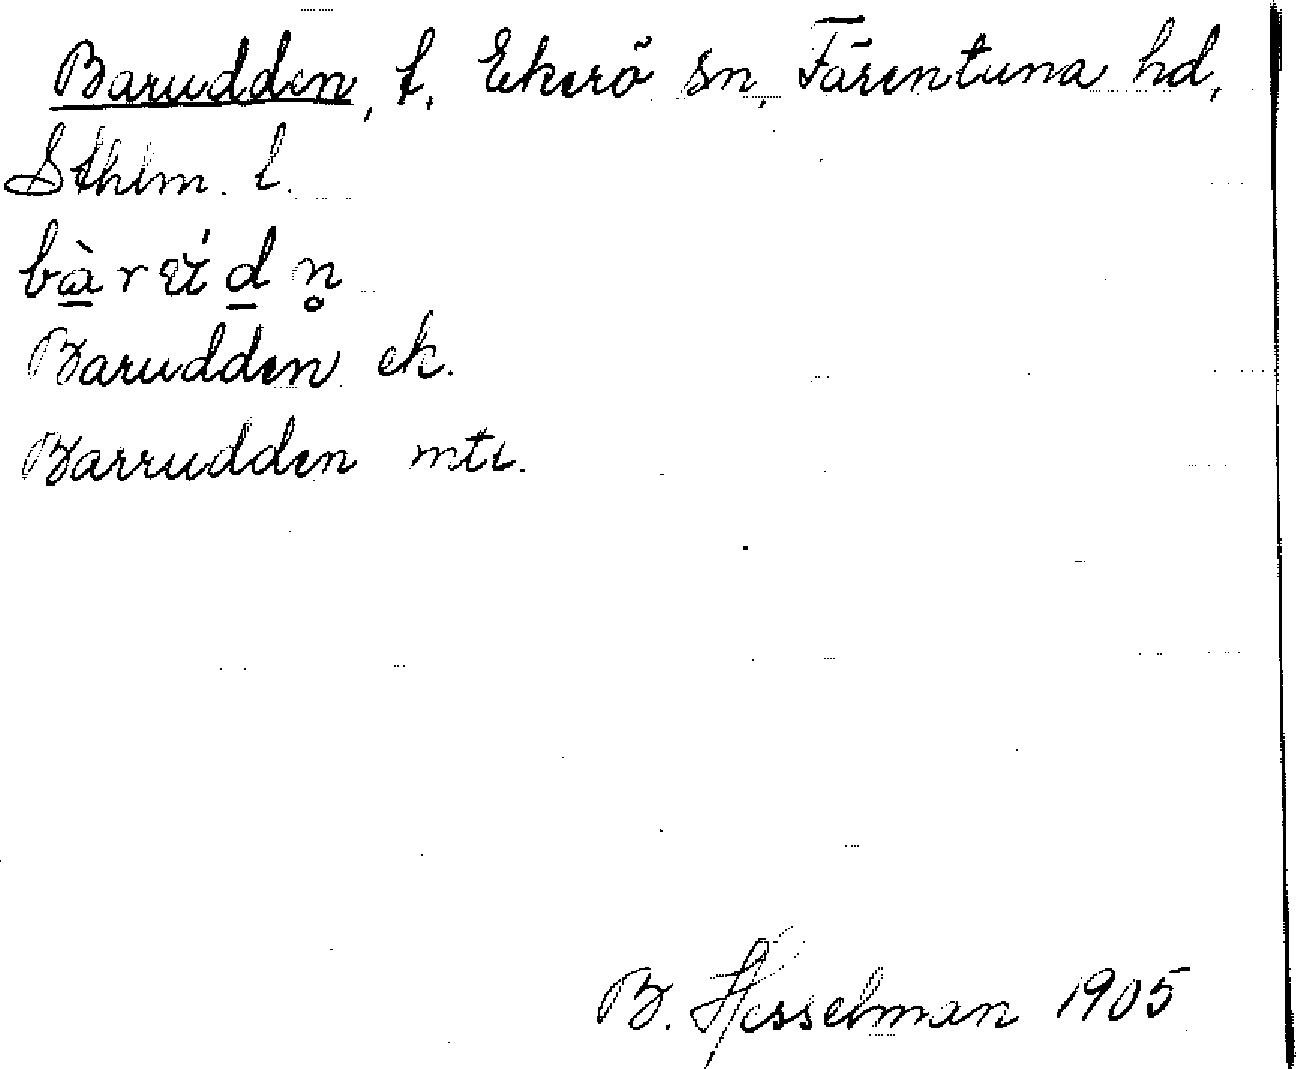 Barudden, t. Ekerö sn, Färentuna hd,
Sthlm. l.
Barudden ek.
Barrudden mtl.
B. Hesselman 1905